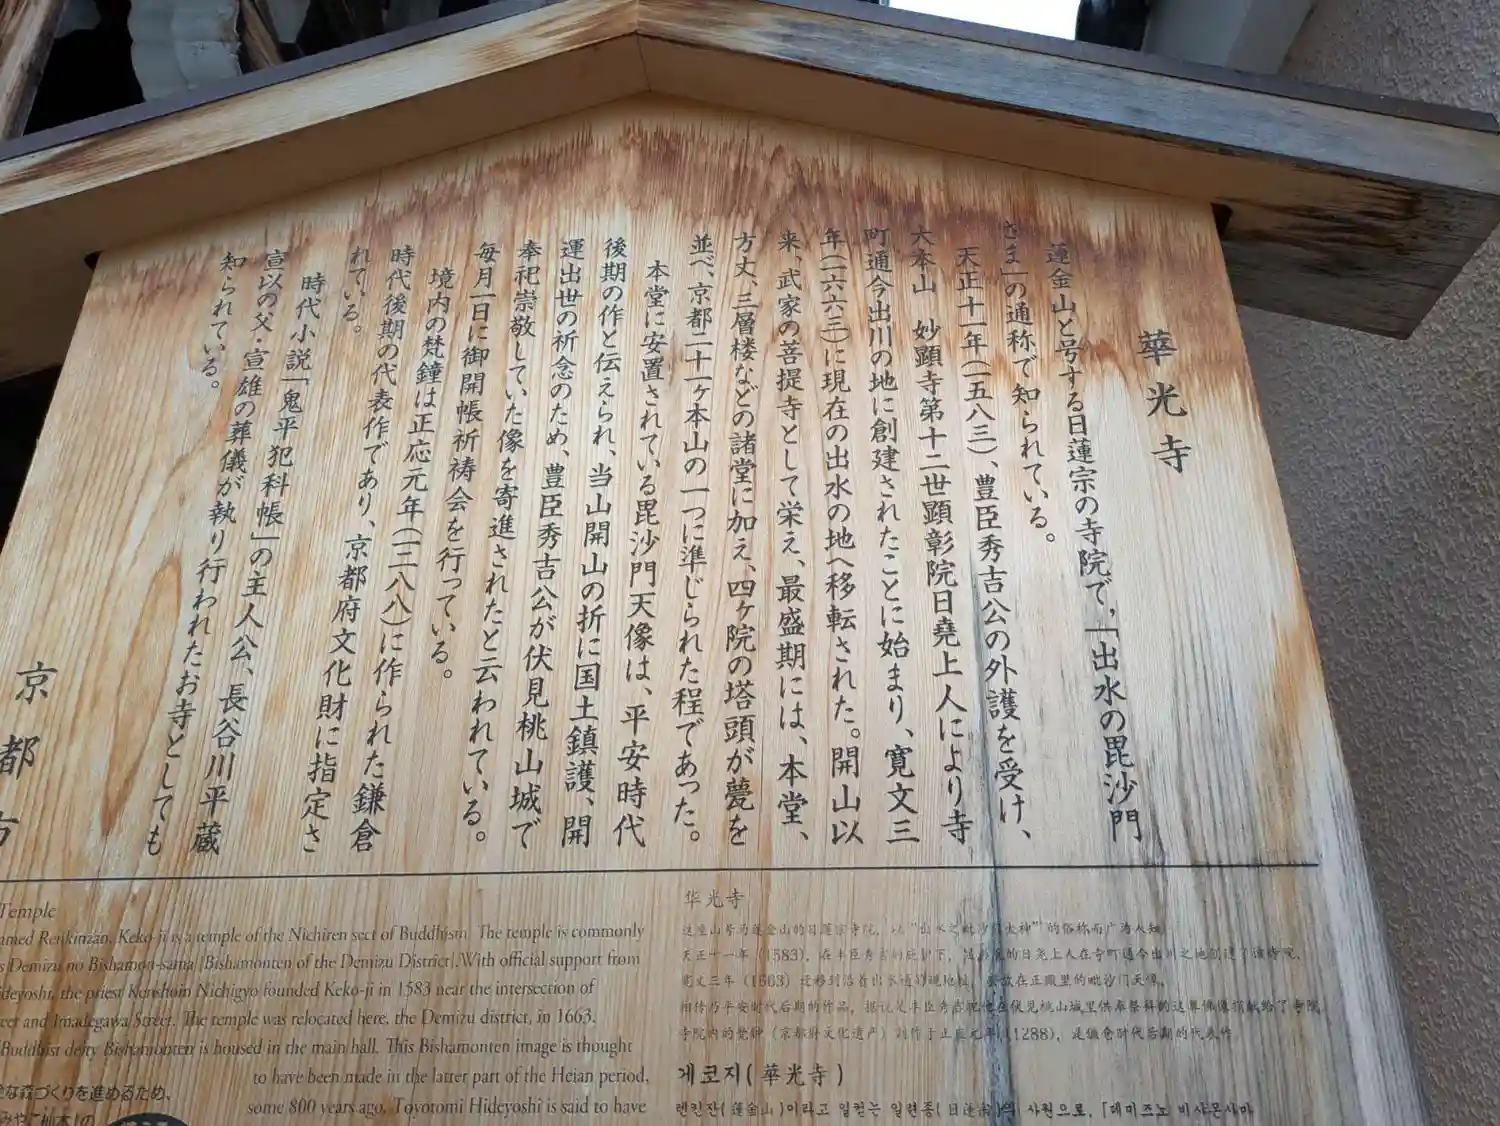 華光寺
蓮金山と号する日蓮宗の寺院で、「出水の毘沙門
さま」の通称で知られている。
天正十一年(一五八三)、豊臣秀吉公の外護を受け、
大本山 妙顕寺第十二世顕彰院日堯上人により寺
町通今出川の地に創建されたことに始まり、寛文三
年(一六六三)に現在の出水の地へ移転された。開山以
来、武家の菩提寺として栄え、最盛期には、本堂、
方丈、三層楼などの諸堂に加え、四ヶ院の塔頭が甍を
並べ、京都二十一ヶ本山の一つに準じられた程であった。
本堂に安置されている毘沙門天像は、平安時代
後期の作と伝えられ、当山開山の折に国土鎮護、開
運出世の祈念のため、豊臣秀吉公が伏見桃山城で
奉祀崇敬していた像を寄進されたと云われている。
毎月一日に御開帳祈祷会を行っている。
境内の梵鐘は正応元年(一二八八)に作られた鎌倉
時代後期の代表作であり、京都府文化財に指定さ
れている。
時代小説「鬼平犯科帳」の主人公、長谷川平蔵
宣以の父・宣雄の葬儀が執り行われたお寺としても
知られている。
京都市
Temple
amed Renkinzan, Keko-ji is a temple of the Nichiren sect of Buddhism. The temple is commonly
s Demizu no Bishamon-sama (Bishamonten of the Demizu District). With official support from
ideyoshi, the priest Kenshoin Nichigyo founded Keko-ji in 1583 near the intersection of
eet and Imadegawa Street. The temple was relocated here, the Demizu district, in 1663.
Buddhist deity Bishamonten is housed in the main hall. This Bishamonten image is thought
to have been made in the latter part of the Heian period,
some 800 years ago. Toyotomi Hideyoshi is said to have
な森づくりを進めるため、
みやこ杣木」の
华光寺
这座山号为莲金山的日莲宗寺院，以“出水之毗沙门大神”的俗称而广为人知。
天正十一年（1583），在丰臣秀吉的庇护下，
宽文三年（1663）迁移到沿着出水通的现地址，安放在正殿里的毗沙门天像，
相传为平安时代后期的作品，据说是丰臣秀吉把他在伏见桃山城里供奉祭拜的这尊佛像捐献给了寺院。
寺院内的梵钟（京都府文化遗产）制作于正应元年（1288），是镰仓时代后期的代表作。
게코지(華光寺)
렌킨잔(蓮金山)이라고 일컫는 일련종(日蓮宗)의 사원으로, 「데미즈노 비샤몬사마